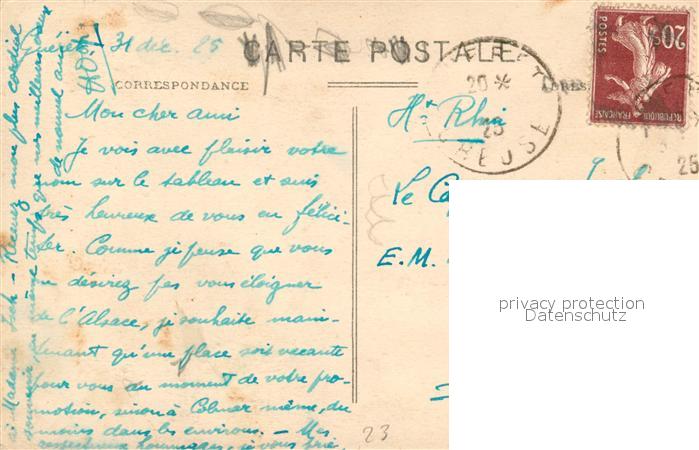 Guéret - 31 déc. 25
CARTE POSTALE
CORRESPONDANCE
Mon cher ami
Je vois avec plaisir votre
nom sur le tableau et suis
très heureux de vous en félici-
ter. Comme je pense que vous
ne désirez pas vous éloigner
de l'Alsace, je souhaite main-
tenant qu'une place soit vacante
pour vous au moment de votre pro-
motion, sinon à Colmar même, du
moins dans les environs. - Mes
respectueux hommages, je vous prie,
à Madame - Recevez mon plus cordial
souvenir, en même temps que mes meilleurs vœux
de nouvel an
Ht Rhin
Le
E.M.
20
25
CREUSE
20c
POSTES
REPUBLIQUE
FRANCAISE
25
23
privacy protection
Datenschutz